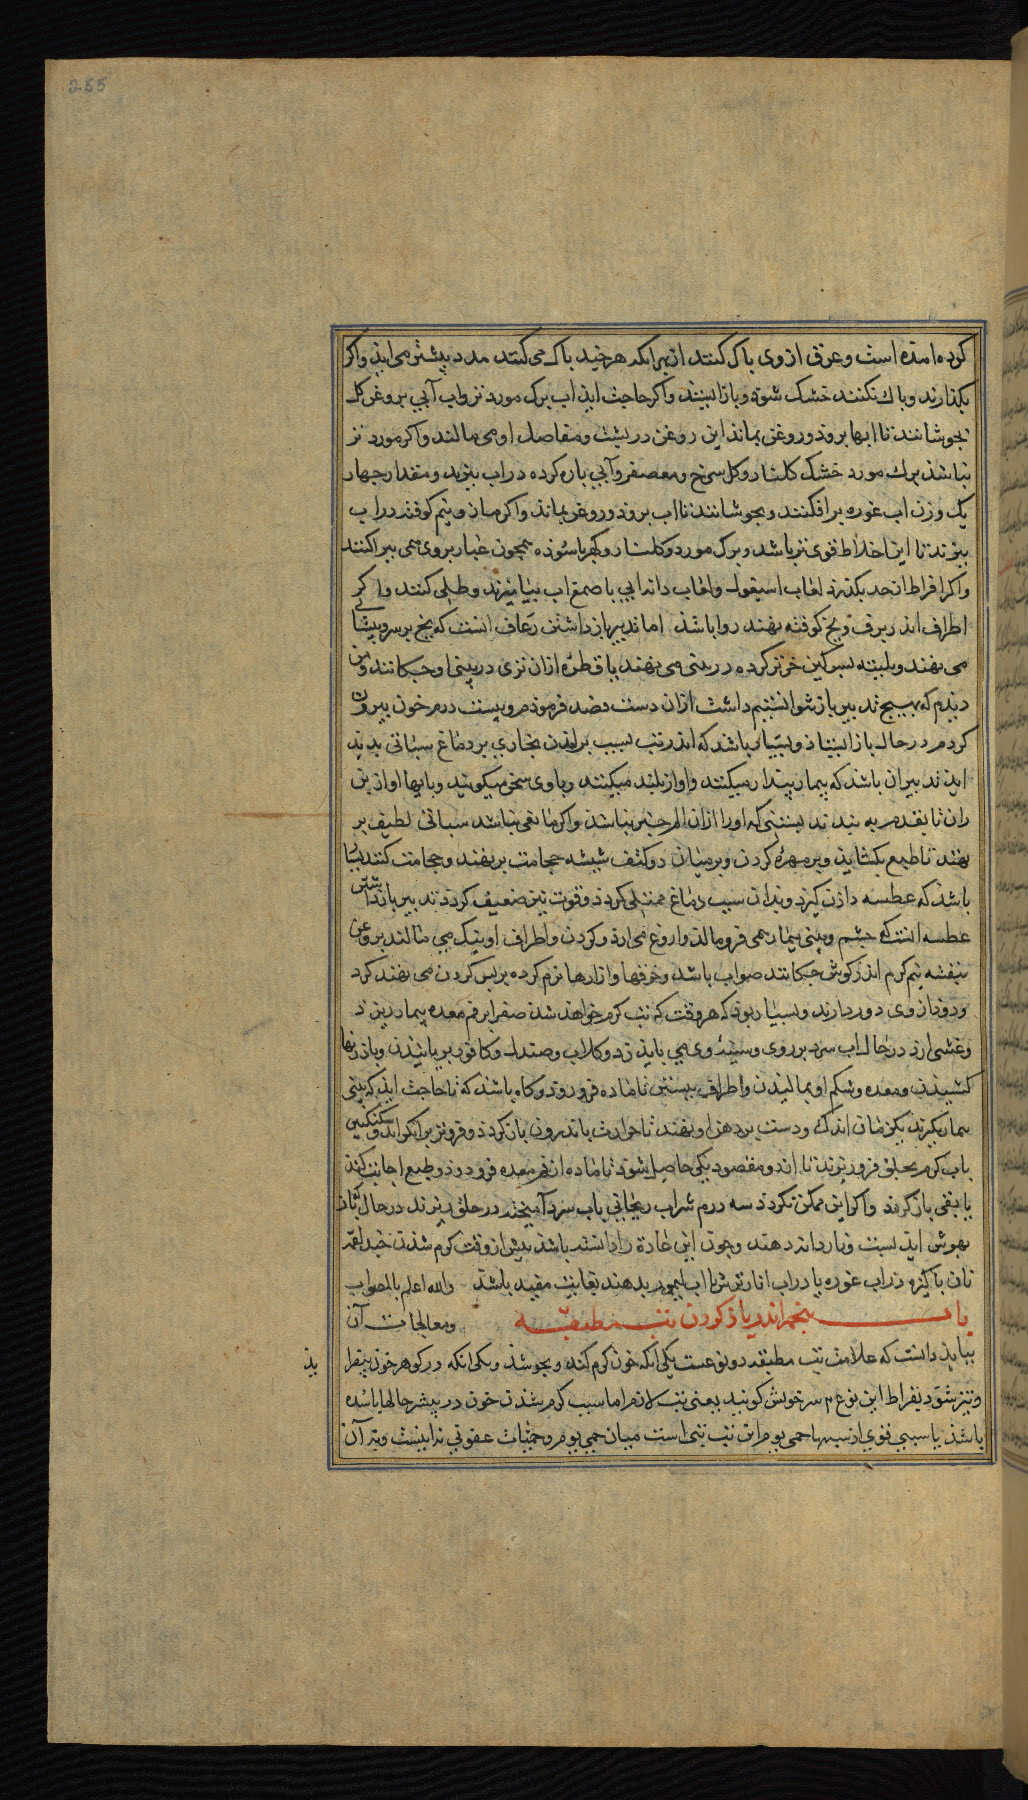 255
کرده امده است وعرق ازوی باک کنند از بهر انکه هرچند باک می کنند مدد بیشتر می ایذ واکر
بکذارند وباک نکنند خشک شوذ وبازایستد واکر حاجت ایذ اب برک مورد تر واب آبی بروغن کل
بجوشانند تا ابها بروذ وروغن بماند این روغن در پشت ومفاصل او می مالند واکر مورد تر
نباشذ برک مورد خشک کلنار وکل سرخ ومعصفر وآبی باره کرده در اب بپزند ومقدار چهار
یک وزن اب غوره برافکنند وبجوشانند تا اب بروذ وروغن بماند واکر مازو نیم کوفته در اب
بپزند تا این اخلاط قوی تر باشد وبرک مورد وکلنار وکهربا سوذه همچون غبار بروی می پراکنند
واکر افراط از حد بکذرذ لعاب اسبغول ولعاب دانه ابی با صمغ اب بیامیزند وطلی کنند واکر
اطراف اندر برف ویخ کوفته نهند روا باشد اما تدبیر بازداشتن رعاف انست که یخ بر سر وپیشانی
می نهند وبلیته بسرکین خر تر کرده در بینی می نهند یا قطره ازان تری در بینی او چکانند ومن
دیدم که بهیچ تدبیر باز نتوانستیم داشت ازان دست فصد فرموذم وبیست درم خون بیرون
کردم در حال بازایستاذ وبسیار باشد که اندر تب بسبب برامدن بخاری بر دماغ سباتی بدید
ایذ تدبیر ان باشد که بیمار بیدار میکنند واواز بلند میکنند وباوی سخن میکویند وبابها او از بن
ران تا بقدم به بندند بستنی که اورا ازان الم خبر باشد واکر مانعی نباشد سباتی لطیف بر
نهند تا طبع بکشاید وبر مهره کردن وبر میان دو کتف شیشه حجامت برنهند وحجامت کنند بسیار
باشد که عطسه دادن کیرد وبدان سبب دماغ ممتلی کردذ وقوت تن ضعیف کردد تدبیر بازداشتن
عطسه انست که چشم وبینی بیمار همی فرومالد واروغ می ارد وکردن واطراف او نیک می مالند بروغن
بنفشه نیم کرم اندر کوش چکانند صواب باشد وخرقها وازارها نرم کرده برپس کردن می نهند کرد
ودوذ ازوی دور دارند وبسیار بوذ که هر وقت که تب کرم خواهد شدن صفرا بر فم معده بیمار ریزد
وغشی ارد در حال اب سرد بر روی وسینه وی می باید زد وکلاب وصندل وکافور بریانیدن وبازنها
کشیدن ومعده وشکم او بمالیدن واطراف ببستن تا ماده فروروذ وکاه باشد که تا حاجت ایذ که بینی
بیمار بکیرند یکزمان اندک ودست بر دهن او نهند تا حرارت باندرون باز کردذ وفروتر براکند وسکنکبین
باب کرم بحلق فروریزند تا ازدو مقصود یکی حاصل شوذ تا ماده از فم معده فروروذ وطبع اجابت کند
یا بقی باز کردد واکر این ممکن نکردذ سه درم شراب ریحانی باب سرد آمیخته در حلق ریزند در حال کشاد
بهوش ایذ بست ونارداند دهند وچون این عادة را دانسته باشد پیش از وقت کرم شدن تب چند لقمه
نان باکیزه در اب غوره یا در اب انار ترش یا اب لیمو بدهند بغایت مفید باشد والله اعلم بالصواب
باب پنجم اندر یاد کردن تب مطبقه ومعالجات آن
بباید دانست که علامت تب مطبقه دو نوعست یکی انکه خون کرم کند وبجوشذ ویکی انکه در کوهر خون بیفزا
یذ
وتیز شود بقراط این نوع را سوناخوس کویند یعنی تب لازم اما سبب کرم شدن خون در بیشتر حالها یا سده
باشد یا سببی قوی از سببها حمی یوم این تب تبی است میان حمی یوم وحمیات عفونی نه اینست ونه آن